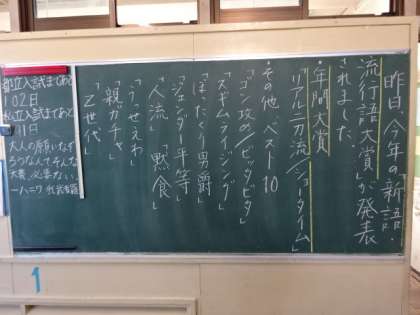 昨日、今年の「新語・
流行語大賞」が発表
されました。
・年間大賞
「リアル二刀流/ショータイム」
・その他 ベスト10
「ゴン攻め/ビッタビタ」
「スギムライジング」
「ぼったくり男爵」
「ジェンダー平等」
「人流」「黙食」
「うっせぇわ」
「親ガチャ」
「Z世代」
都立入試まであと
102日
私立入試まであと
大人の
なんてそんな
必要ない。
1